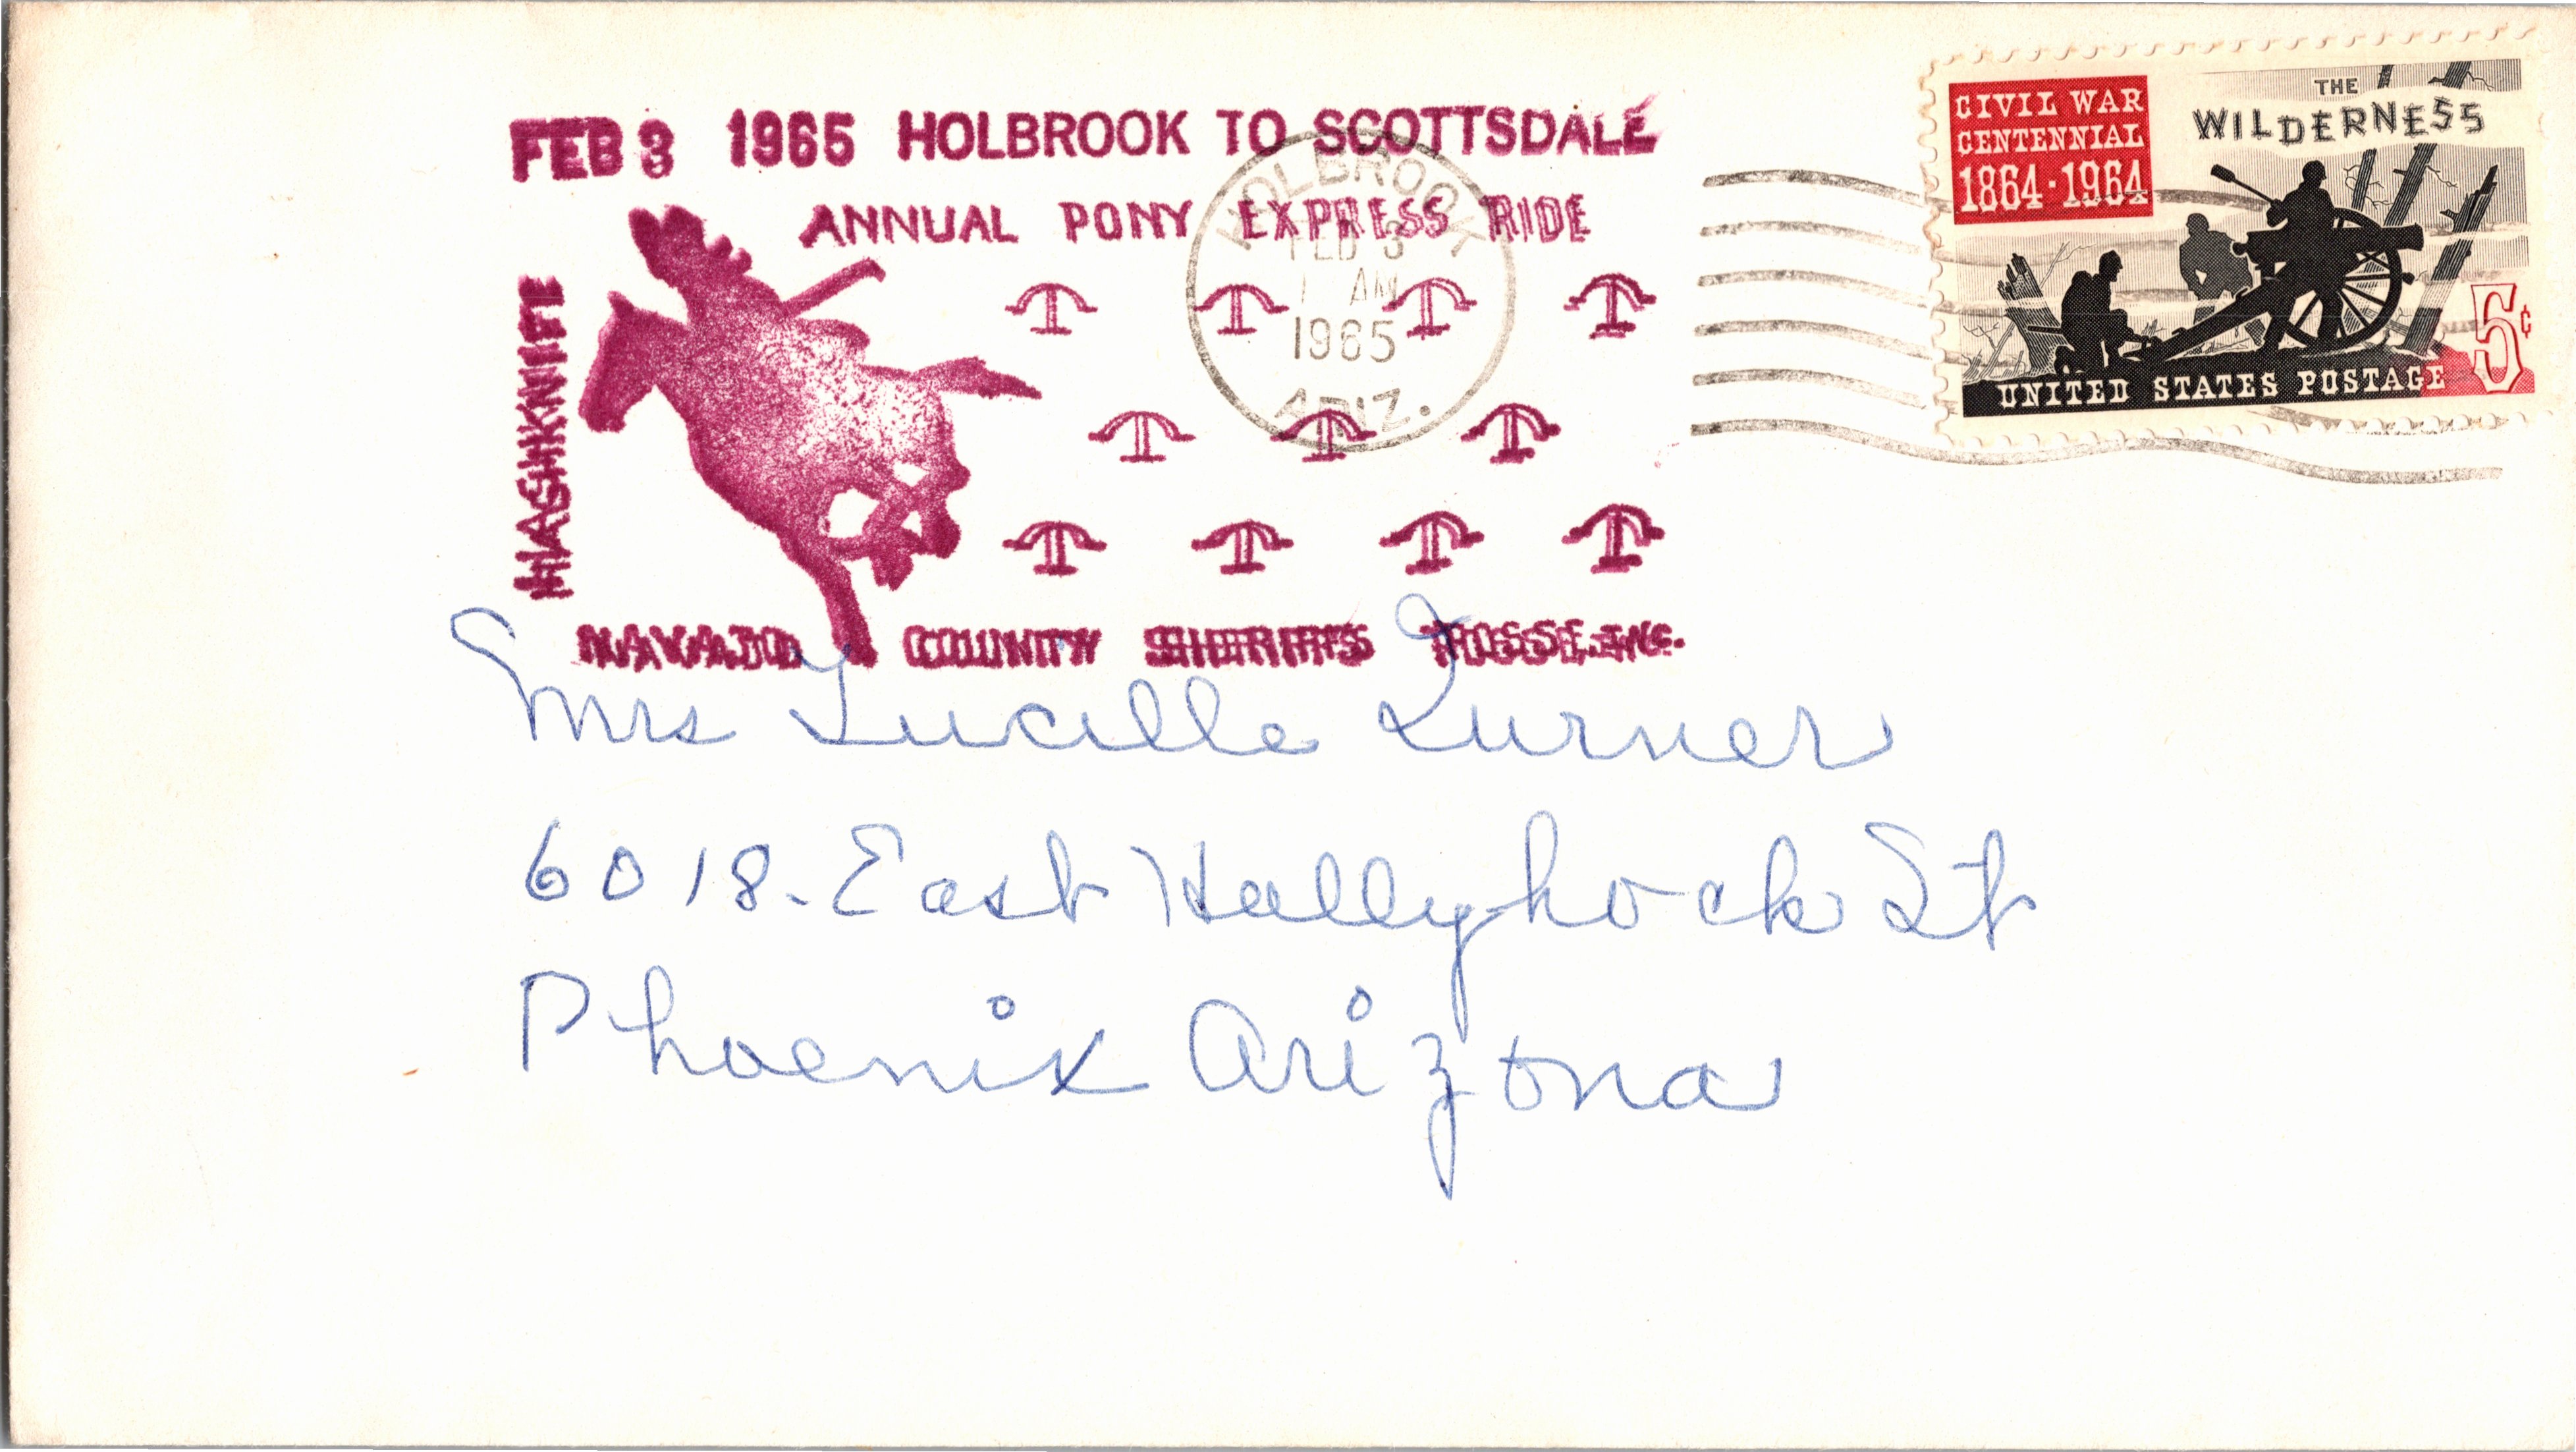 FEB 3 1965 HOLBROOK TO SCOTTSDALE
ANNUAL PONY EXPRESS RIDE
HASHKNIFE
NAVAJO COUNTY SHERIFFS POSSE, INC.
HOLBROOK
FEB 3
1 AM
1965
ARIZ.
CIVIL WAR
CENTENNIAL
1864-1964
THE
WILDERNESS
5¢
UNITED STATES POSTAGE
Mrs Lucille Turner
6018- East Hollyhock St
Phoenix Arizona